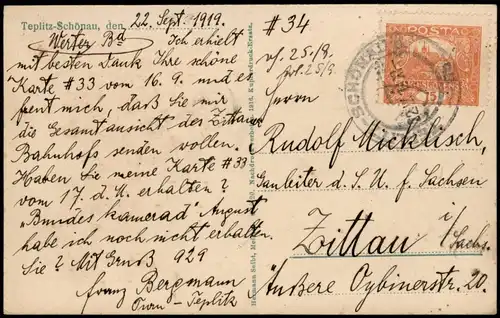 Teplitz-Schönau, den 22. Sept. 1919.
Werter Bd Ich erhielt
mit besten Dank Ihre schöne
Karte #33 vom 16. 9. und es
freut mich, daß Sie mir
die Gesamtansicht des Zittauer
Bahnhofs senden wollen.
Haben Sie meine Karte #33
vom 17. d. M. erhalten?
"Bundeskamerad" August
habe ich noch nicht erhalten.
Sie? Mit Gruß 929
Franz Bergmann
Turn-Teplitz
Hermann Seibt, 1916, Kupferdruck-Ersatz.
#34
25/9.
25/9.
POSTA
SCHÖNAU
Herrn
Rudolf Micklisch,
Gauleiter d. I. U. f. Sachsen
Zittau i/Sachs.
Äußere Oybinerstr. 20.